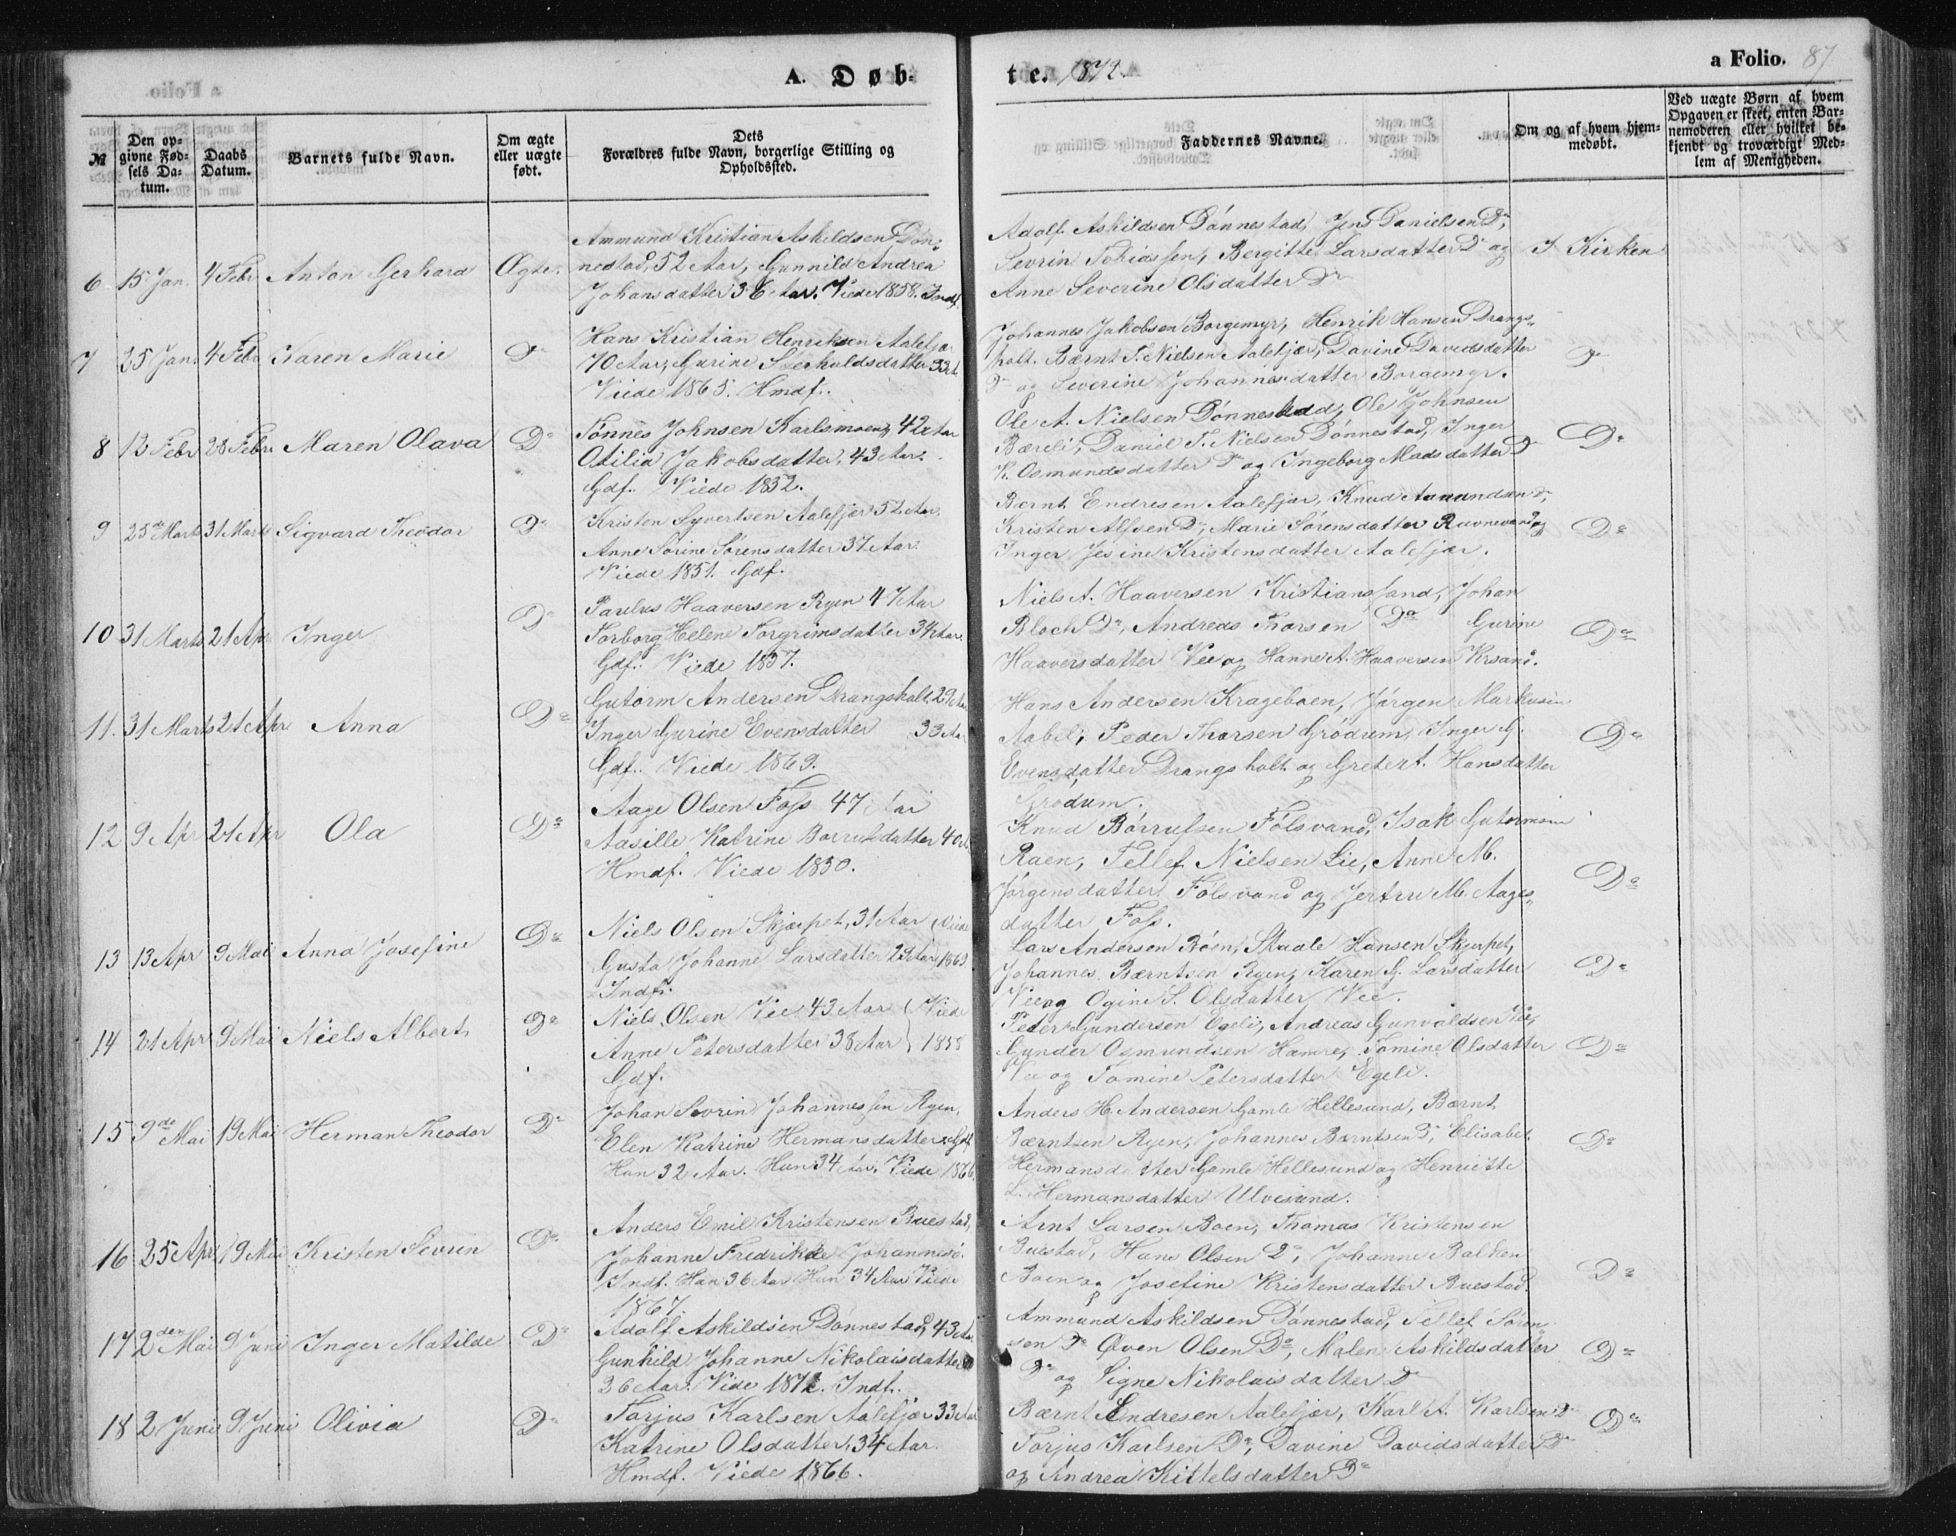 A. Døb-
te. 1872.
a Folio. 87
№
Den opgivne Fødsels Datum.
Daabs Datum.
Barnets fulde Navn.
Om ægte eller uægte født.
Dets Forældres fulde Navn, borgerlige Stilling og Opholdssted.
Faddernes Navne.
Om og af hvem hjemmedøbt.
Ved uægte Børn af hvem Opgaven er skeet, enten Barnemoderen eller hvilket bekjendt og troværdigt Medlem af Menigheden.
6 15 Jan. 4 Febr Anton Gerhard Ægte.
Ammund Kristian Askildsen Døn-
nestad, 52 Aar, Gunnild Andrea
Johansdatter 36 Aar. Viede 1858. Indf.
Adolf Askildsen Dönnestad, Jens Danielsen Do
Sevrin Tobiassen, Bergitte Larsdatter Do og
Anne Severine Olsdatter Do
I Kirken
7 25 Jan. 4 Febr Karen Marie Do
Hans Kristian Henriksen Aalefjær
70 Aar, Gurine Sverkuldsdatter 33 A.
Viede 1865. Hmdf.
Johannes Jakobsen Borgemyr, Henrik Hansen Drangs-
holt. Bærnt T. Nielsen Aalefjær, Davine Davidsdatter
Do og Severine Johannesdatter Borgemyr.
Do
8 13 Febr 28 Febr Maren Olava Do
Tönnes Johnsen Karlsmoen, 42 Aar
Otilia Jakobsdatter, 43 Aar.
Gdf. Viede 1852.
Ole A. Nielsen Dönnestad, Ole Johnsen
Bæreli, Daniel T. Nielsen Dönnestad, Inger
K. Osmundsdatter Do og Ingeborg Madsdatter Do
Do
9 25de Marts 31 Marts Sigvard Theodor Do
Kristen Syvertsen Aalefjær 52 Aar.
Anne Sörine Sörensdatter 37 Aar.
Viede 1851. Gdf.
Bærnt Endresen Aalefjær, Knud Aanundsen Do,
Kristen Alfsen Do, Marie Sörensdatter Ravnevand og
Inger Jesine Kristensdatter Aalefjær.
Do
10 31 Marts 21 Apr Inger Do
Paulus Haaversen Ryen 47 Aar
Torborg Helene Torgrimsdatter 34 Aar.
Gdf. Viede 1857.
Niels A. Haaversen Kristianssand, Johan
Bloch Do, Andreas Thorsen Do Gurine
Haaversdatter Vee og Hanne A. Haaversen Krsand.
Do
11. 31 Marts 21 Apr Anna Do
Gutorm Andersen Drangsholt, 29 Aar
Inger Gurine Evensdatter 33 Aar
Gdf. Viede 1869.
Hans Andersen Krageboen, Jørgen Markusen
Aabel, Peder Thorsen Grödum, Inger G.
Evensdatter Drangsholt og Grete A. Hansdatter
Grödum.
Do
12 9 Apr 21 Apr Ola Do
Aage Olsen Foss 47 Aar
Aasille Katrine Borrufsdatter 40 A.
Hmdf. Viede 1850.
Knud Börrufsen Fölsvand, Isak Gutormsen
Raen, Tellef Nielsen Lie, Anne M.
Jørgensdatter Fölsvand og Jertru M. Aages-
datter Foss.
Do
13 13 Apr 9 Mai Anna Josefine Do
Niels Olsen Skjærpet, 31 Aar (Viede
Gusta Johanne Larsdatter 29 Aar) 1869
Indf.
Lars Andersen Böen, Staale Hansen Skjerpet,
Johannes Bærntsen Ryen, Karen G. Larsdatter
Vee og Ogine S. Olsdatter Vee.
Do
14 21 Apr 9 Mai Niels Albert Do
Niels Olsen Vee 43 Aar (Viede
Anne Petersdatter 38 Aar) 1858
Gdf.
Peter Gundersen Egeli, Andreas Gunvaldsen Vee,
Gunder Osmundsen Hamre, Tomine Olsdatter
Vee og Tomine Petersdatter Egeli.
Do
15 9de Mai 19 Mai Herman Theodor Do
Johan Sevrin Johannessen Ryen,
Elen Katrine Hermansdatter Gdf.
Han 32 Aar. Hun 34 Aar. Viede 1866.
Anders H. Andersen Gamle Hellesund, Bærnt
Bærntsen Ryen, Johannes Bærntsen Do, Elisabet
Hermansdatter Gamle Hellesund og Henriette
L. Hermansdatter Ulvesund.
Do
16 25 Apr 19 Mai Kristen Sevrin Do
Anders Emil Kristensen Buestad,
Johanne Fredrikke Johannesd.
Indf. Han 36 Aar Hun 34 Aar Viede
1867.
Arnt Larsen Boen, Thomas Kristensen
Buestad, Hans Olsen Do, Johanne Balken
Boen og Josefine Kristensdatter Buestad.
Do
17 2den Mai 9 Juni Inger Matilde Do
Adolf Askildsen Dönnestad, 43 Aar
Gunhild Johanne Nikolaisdatter
26 Aar. Vide 1871. Indf.
Ammund Askildsen Dönnestad, Tellef Sören-
sen Do Øven Olsen Do, Malene Askildsdatter
Do og Signe Nikolaisdatter Do
Do
18 2 Juni 9 Juni Olivia Do
Torjus Karlsen Aalefjær 33 Aar
Katrine Olsdatter, 34 Aar.
Hmdf. Viede 1866.
Bærnt Endresen Aalefjær, Karl A. Karlsen Do
Torjus Karlsen Do, Davine Davidsdatter Do
og Andrea Kittelsdatter Do
Do